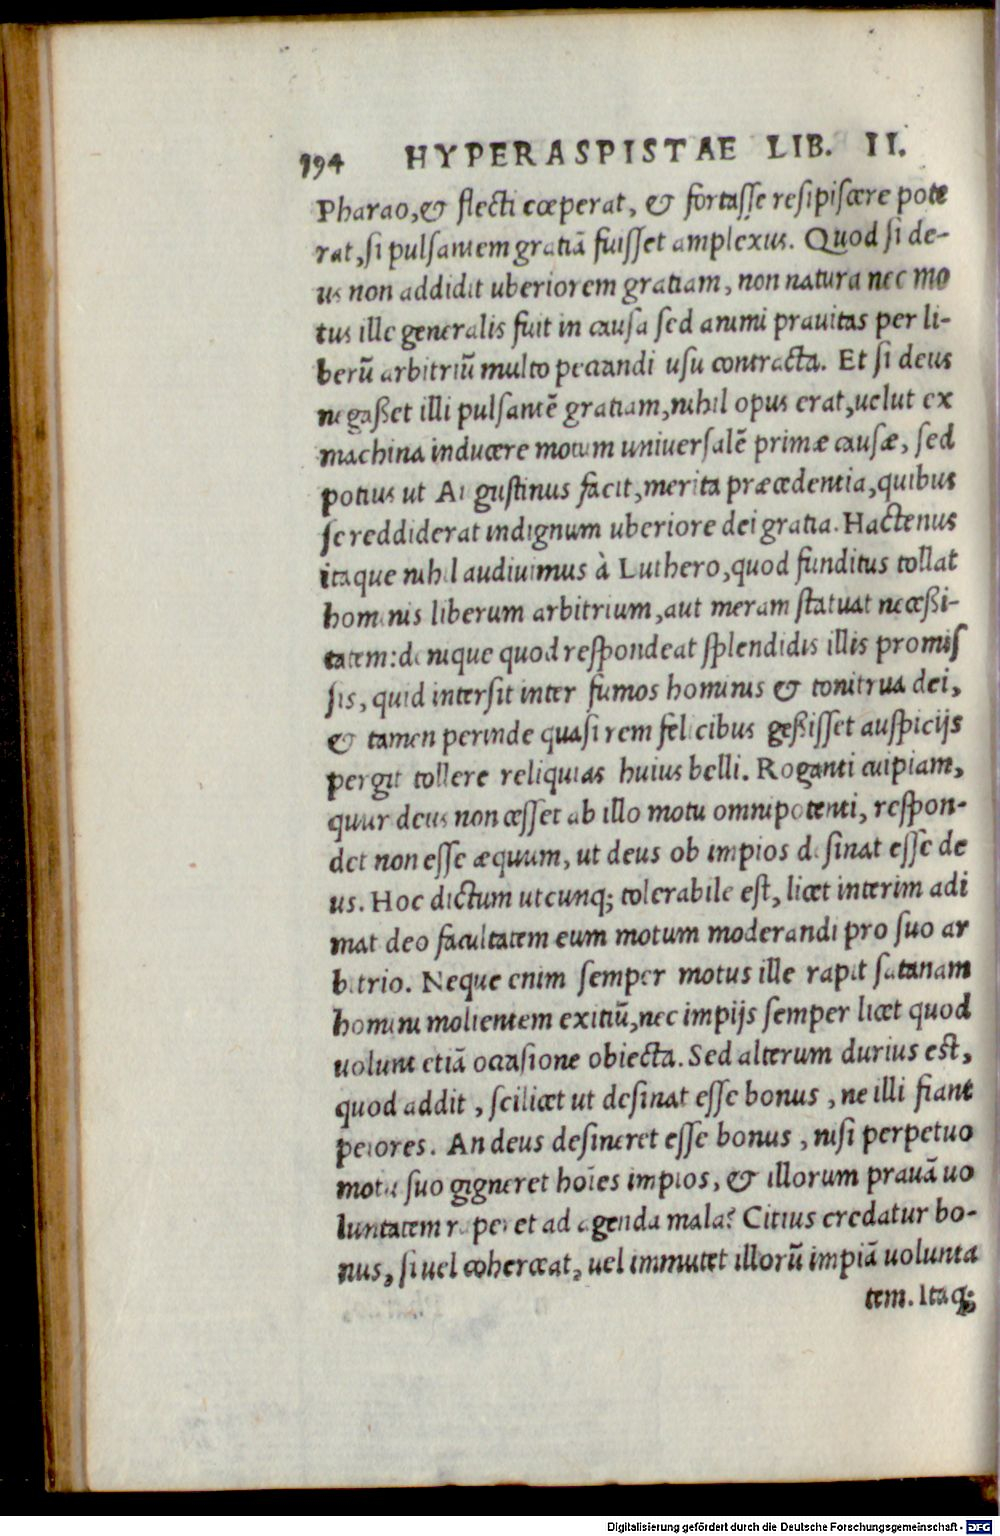 194 HYPERASPISTAE LIB. II.
Pharao, & flecti cœperat, & fortasse resipiscere pote
rat, si pulsantem gratiā fuisset amplexus. Quod si de-
us non addidit uberiorem gratiam, non natura nec mo
tus ille generalis fuit in causa sed animi prauitas per li-
berū arbitriū multo peccandi usu contracta. Et si deus
negaßet illi pulsantē gratiam, nihil opus erat, uelut ex
machina inducere motum uniuersalē primæ causæ, sed
potius ut Augustinus facit, merita præcedentia, quibus
se reddiderat indignum uberiore dei gratia. Hactenus
itaque nihil audiuimus à Luthero, quod funditus tollat
hominis liberum arbitrium, aut meram statuat neceßi-
tatem: denique quod respondeat splendidis illis promis
sis, quid intersit inter fumos hominis & tonitrua dei,
& tamen perinde quasi rem felicibus geßisset auspicijs
pergit tollere reliquias huius belli. Roganti cuipiam,
quur deus non cesset ab illo motu omnipotenti, respon-
det non esse æquum, ut deus ob impios desinat esse de
us. Hoc dictum utcunq; tolerabile est, licet interim adi
mat deo facultatem eum motum moderandi pro suo ar
bitrio. Neque enim semper motus ille rapit satanam
homini molientem exitiū, nec impijs semper licet quod
uolunt etiā occasione obiecta. Sed alterum durius est,
quod addit, scilicet ut desinat esse bonus, ne illi fiant
peiores. An deus desineret esse bonus, nisi perpetuo
motu suo gigneret hoīes impios, & illorum prauā uo
luntatem raperet ad agenda mala? Citius credatur bo-
nus, si uel coherceat, uel immutet illorū impiā uolunta
tem. Itaq;
Digitalisierung gefördert durch die Deutsche Forschungsgemeinschaft - DFG